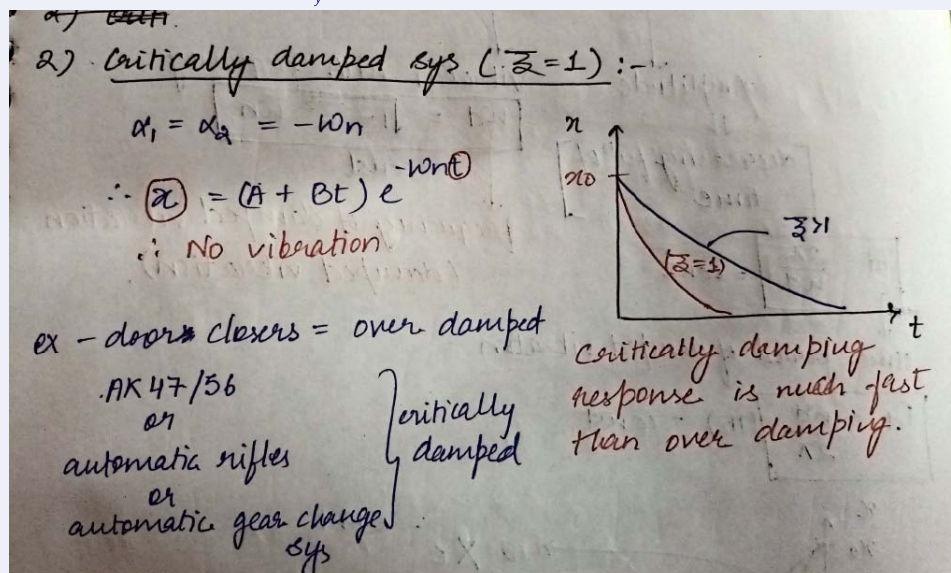 2) Critically damped sys. (ξ=1) :-
α₁ = α₂ = -ωn
∴ x = (A + Bt) e^-ωnt
∴ No vibration
ex - doors closers = over damped
AK 47/56
or
automatic rifles
or
automatic gear change
sys
critically
damped
x
x0
ξ>1
(ξ=1)
t
Critically damping
response is much fast
than over damping.